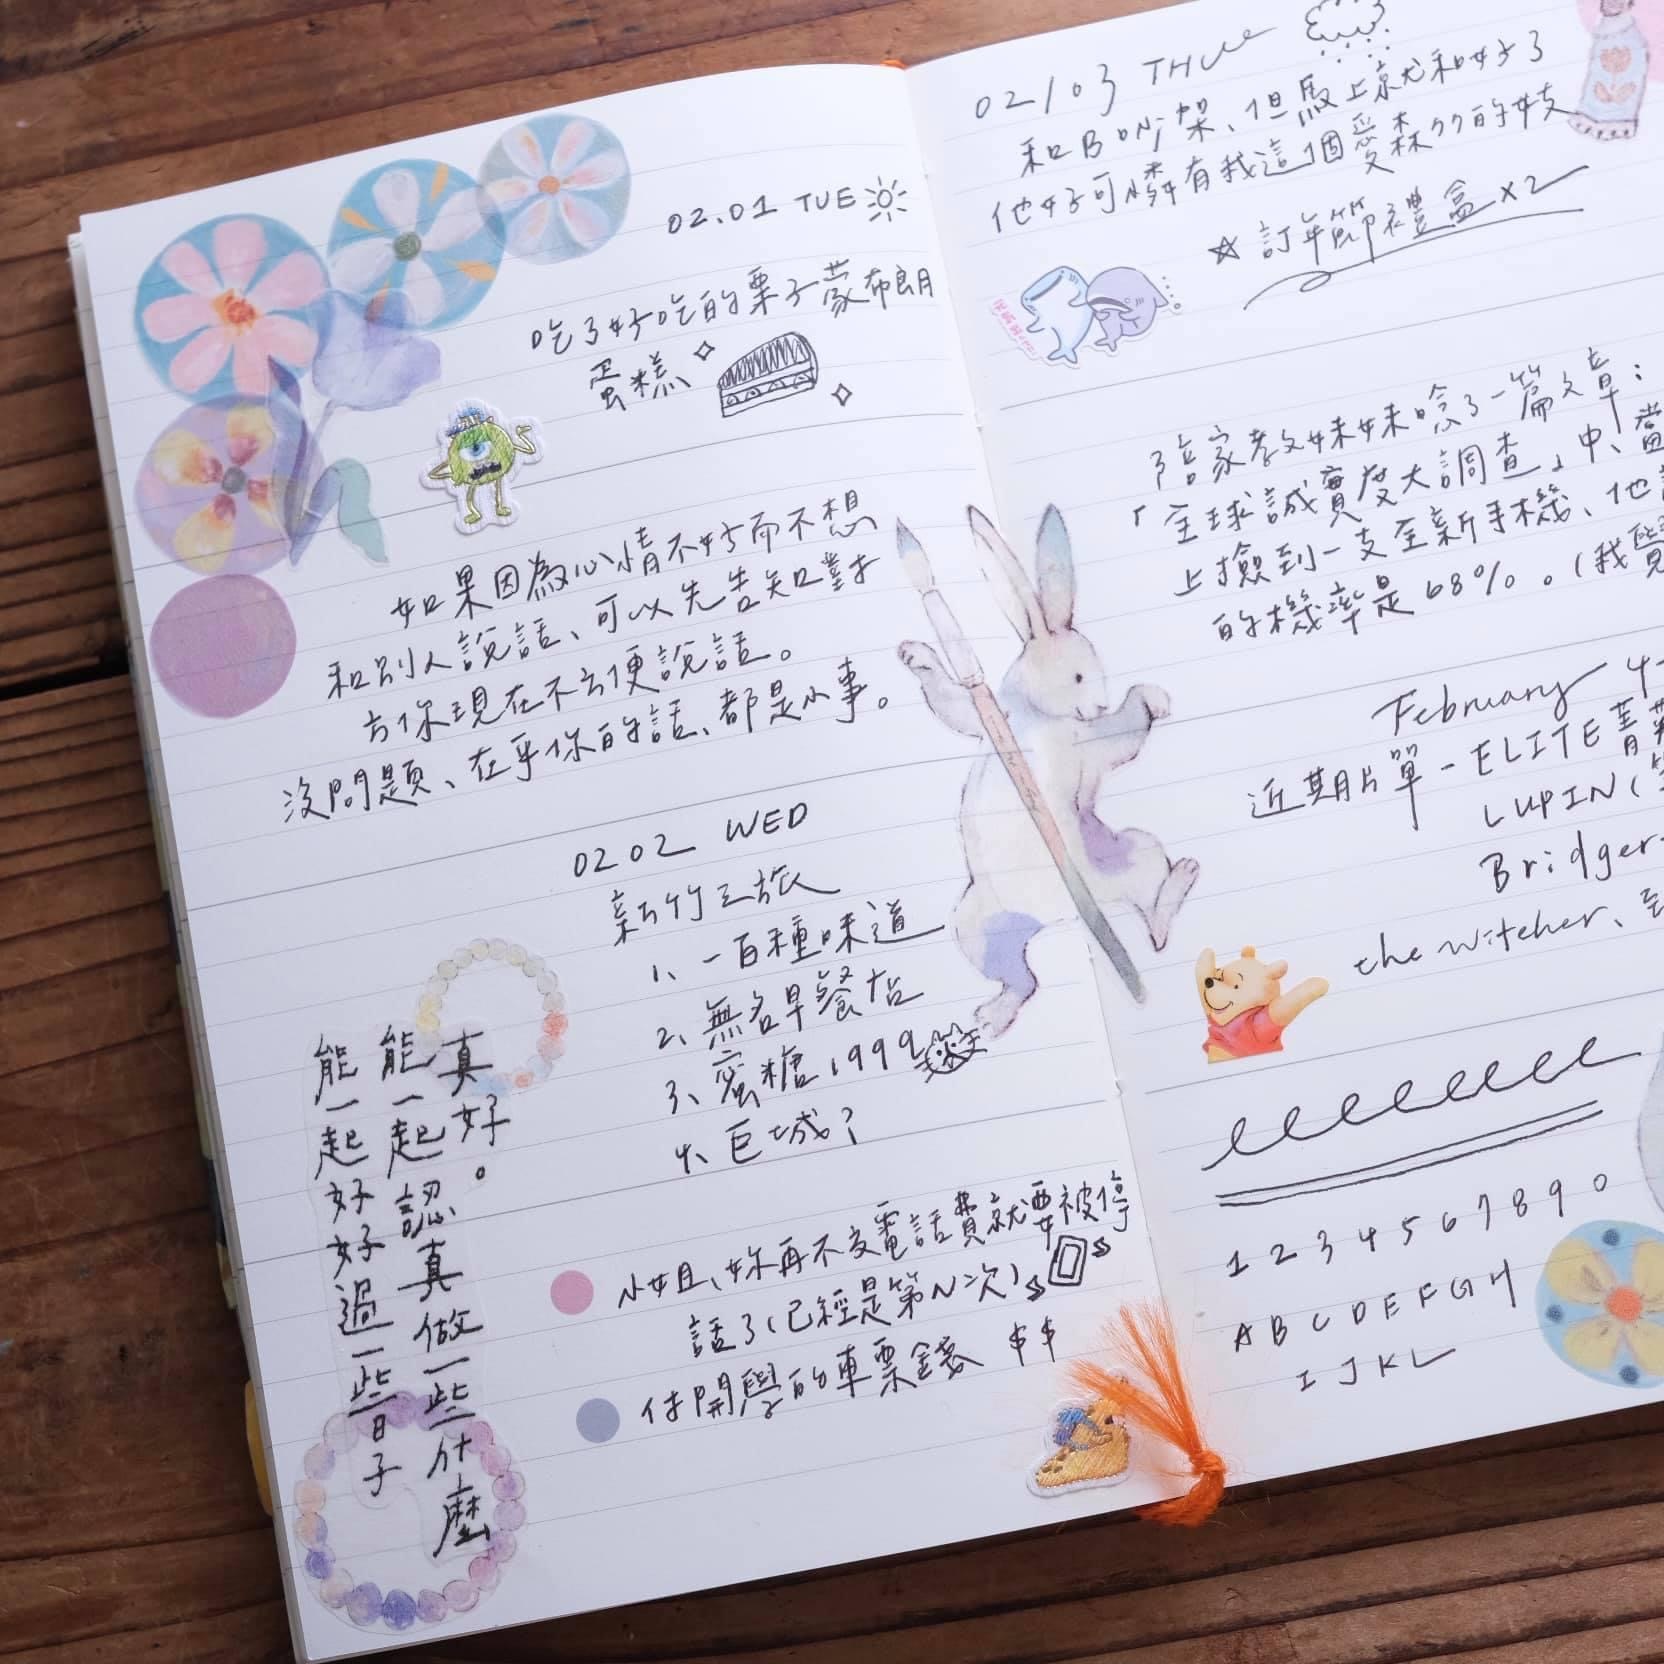 02.01 TUE
吃了好吃的栗子蒙布朗
蛋糕
如果因為心情不好而不想
和別人說話、可以先告知對
方你現在不方便說話。
沒問題、在乎你的話、都是小事。
0202 WED
新竹之旅
1、一百種味道
2、無名早餐店
3、蜜糖1999
4、巨城?
真好。
能一起認真做一些什麼
能一起好好過一些日子
小姐、妳再不交電話費就要被停
話了(已經是第N次)
付開學的車票錢 $$
02/03 THU
和B吵架、但馬上就和好了
他好可憐有我這個愛森77的女友
☆ 訂年節禮盒 x2
了 家教妹妹唸了一篇文章:
「全球誠實度大調查」中、當
上撿到一支全新手機、他
的機率是68%。(我覺
February 4
近期片單 - ELITE菁英
LUPIN(
Bridger
the witcher、
1 2 3 4 5 6 7 8 9 0
A B C D E F G H
I J K L